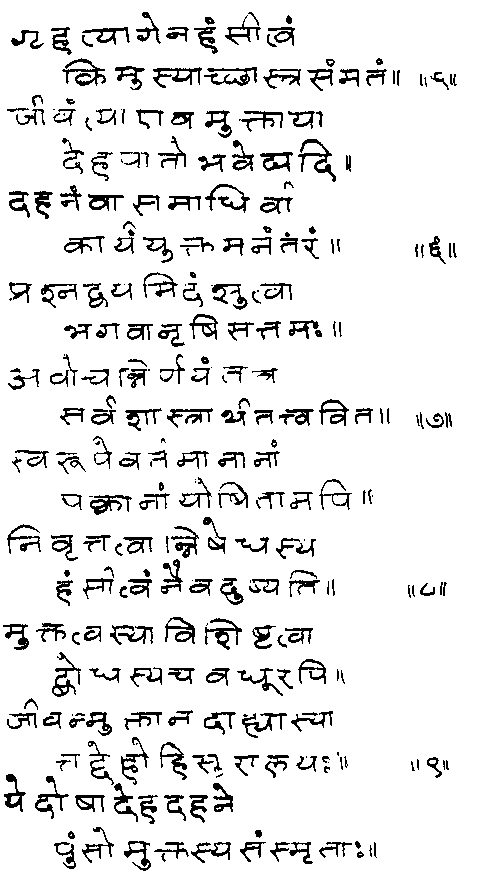 गृहत्यागेन हंसीत्वं
किमु स्याच्छास्त्रसंमतं॥ ॥५॥
जीवंत्या एव मुक्ताया
देहपातो भवेद्यदि॥
दहनं वा समाधिर्वा
कार्यं युक्तमनंतरं॥ ॥६॥
प्रश्नद्वयमिदं श्रुत्वा
भगवानृषिसत्तमः॥
अवोचन्निर्णयं तत्र
सर्वशास्त्रार्थतत्त्ववित॥ ॥७॥
स्वरूपे वर्तमानानां
पक्वानां योषितामपि॥
निवृत्तत्वान्निषेधस्य
हंसीत्वं नैव दुष्यति॥ ॥८॥
मुक्तत्वस्याविशिष्टत्वा
द्बोधस्य च वधूरपि॥
जीवन्मुक्ता न दाह्या स्या
त्तद्देहो हि सुरालयः॥ ॥९॥
ये दोषा देहदहने
पुंसो मुक्तस्य संस्मृताः॥